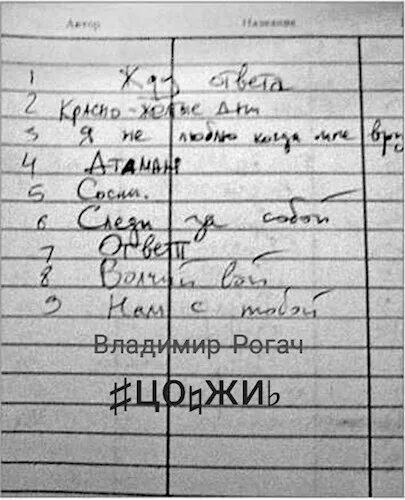 Автор Название
1 Жду ответа
2 Красно-жолтые дни
3 Я не люблю когда мне вру
4 Атаман
5 Сосны.
6 Следи за собой
7 Ответ
8 Волчий вой
9 Нам с тобой
Владимир Рогач
♯ЦО♮ЖИ♭